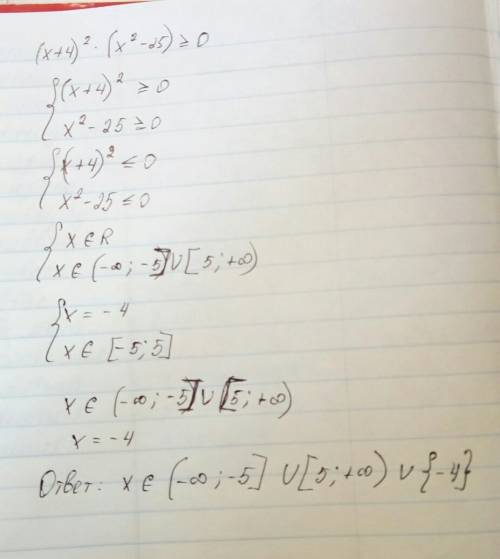 (x+4)² · (x² - 25) ≥ 0
{ (x+4)² ≥ 0
x² - 25 ≥ 0
{ (x+4)² ≤ 0
x² - 25 ≤ 0
{ x ∈ R
x ∈ (-∞; -5] ∪ [5; +∞)
{ x = -4
x ∈ [-5; 5]
x ∈ (-∞; -5] ∪ [5; +∞)
x = -4
Ответ: x ∈ (-∞; -5] ∪ [5; +∞) ∪ {-4}